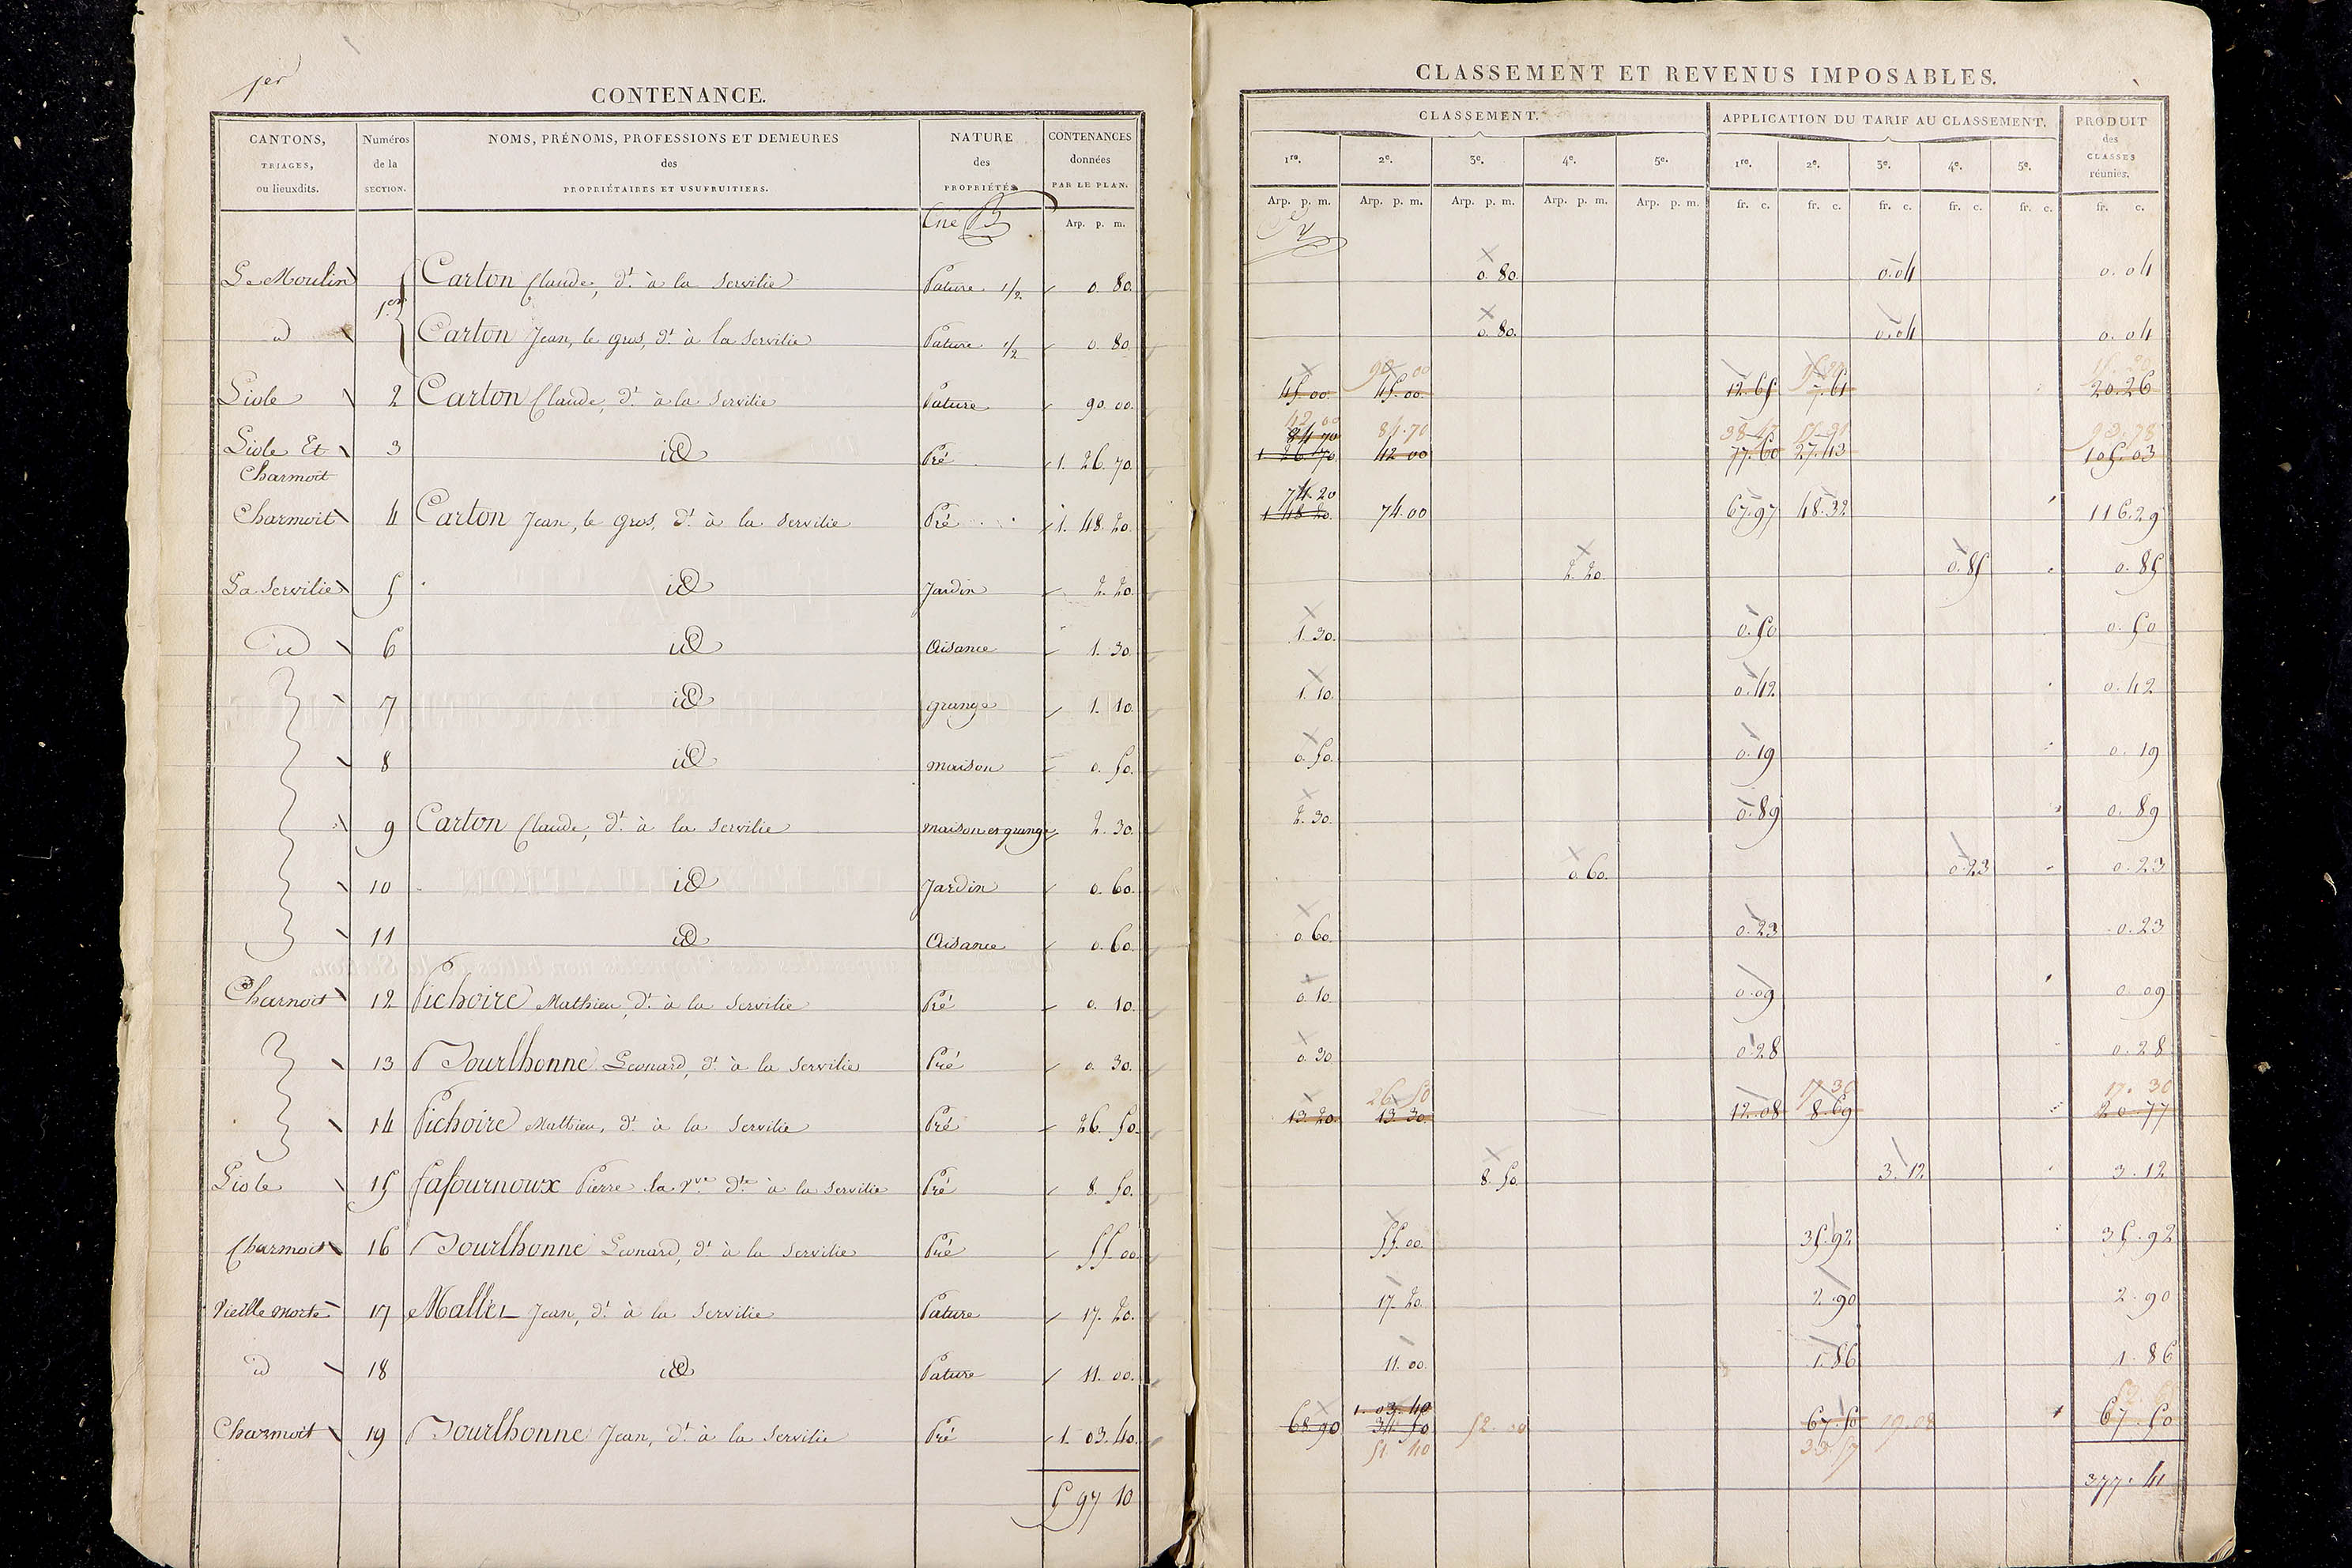 1er
CONTENANCE.
CANTONS,
TRIAGES,
ou lieuxdits.
Numéros
de la
SECTION.
NOMS, PRÉNOMS, PROFESSIONS ET DEMEURES
des
PROPRIÉTAIRES ET USUFRUITIERS.
NATURE
des
PROPRIÉTÉS
CONTENANCES
données
PAR LE PLAN.
Arp. p. m.
Le Moulin 1er Carton Claude, dt à la Servilie Pature 1/2 0. 80.
id Carton Jean, le gros, dt à la Servilie Pature 1/2 0. 80
Liole 2 Carton Claude, dt à la Servilie Pature 90. 00.
Liole Et 3 id Pré 1. 26. 70
Charmoit
Charmoit 4 Carton Jean, le gros, dt à la Servilie Pré 1. 48. 20.
La Servilie 5 id Jardin 2. 20.
id 6 id Aisance 1. 30
7 id grange 1. 10
8 id maison 0. 50.
9 Carton Claude, dt à la Servilie maison et grange 2. 30.
10 id Jardin 0. 60.
11 id Aisance 0. 60.
Charmoit 12 Pichoire Mathieu, dt à la Servilie Pré 0. 10.
13 Tourlhonne Leonard, dt à la Servilie Pré 0. 30.
14 Pichoire Mathieu, dt à la Servilie Pré 26. 50.
Liole 15 Lafournoux Pierre la Vve dte à la Servilie Pré 8. 50.
Charmoit 16 Tourlhonne Leonard, dt à la Servilie Pré 55. 00
Vieille morte 17 Mallet Jean, dt à la Servilie Pature 17. 20.
id 18 id Pature 11. 00.
Charmoit 19 Tourlhonne Jean, dt à la Servilie Pré 1. 03. 40.
5 97 10
CLASSEMENT ET REVENUS IMPOSABLES.
CLASSEMENT.
1re. 2e. 3e. 4e. 5e.
Arp. p. m. Arp. p. m. Arp. p. m. Arp. p. m. Arp. p. m.
APPLICATION DU TARIF AU CLASSEMENT.
1re. 2e. 3e. 4e. 5e.
fr. c. fr. c. fr. c. fr. c. fr. c.
PRODUIT
des
CLASSES
réunies.
fr. c.
0. 80. 0. 04 0. 04
0. 80. 0. 04 0. 04
90 00
45. 00. 45. 00. 12. 65 7. 61 20. 26
42. 00 84. 70 38-47 93. 78
84 70
1. 26. 70. 42 00 77. 60 27. 43 105. 03
74. 20
1 48 20. 74. 00 67. 97 48. 32 116. 29
2. 20. 0. 85 0. 85
1. 30. 0. 50 0. 50
1. 10. 0. 42 0. 42
0. 50. 0. 19 0. 19
2. 30. 0. 89 0. 89
0. 60. 0. 23 0. 23
0. 60. 0. 23 0. 23
0. 10. 0. 09 0. 09
0. 30 0. 28 0. 28
26. 50 17. 30 17. 30
13. 20. 13. 30. 12. 08 8. 69 20. 77
8. 50. 3. 12 3. 12
55. 00. 35. 92 35. 92
17. 20. 2. 90 2. 90
11. 00. 1. 86 1. 86
1. 03. 40
68. 90 34 50 52. 00 67. 50 19. 08 67. 50
51 40 33. 57
377. 41